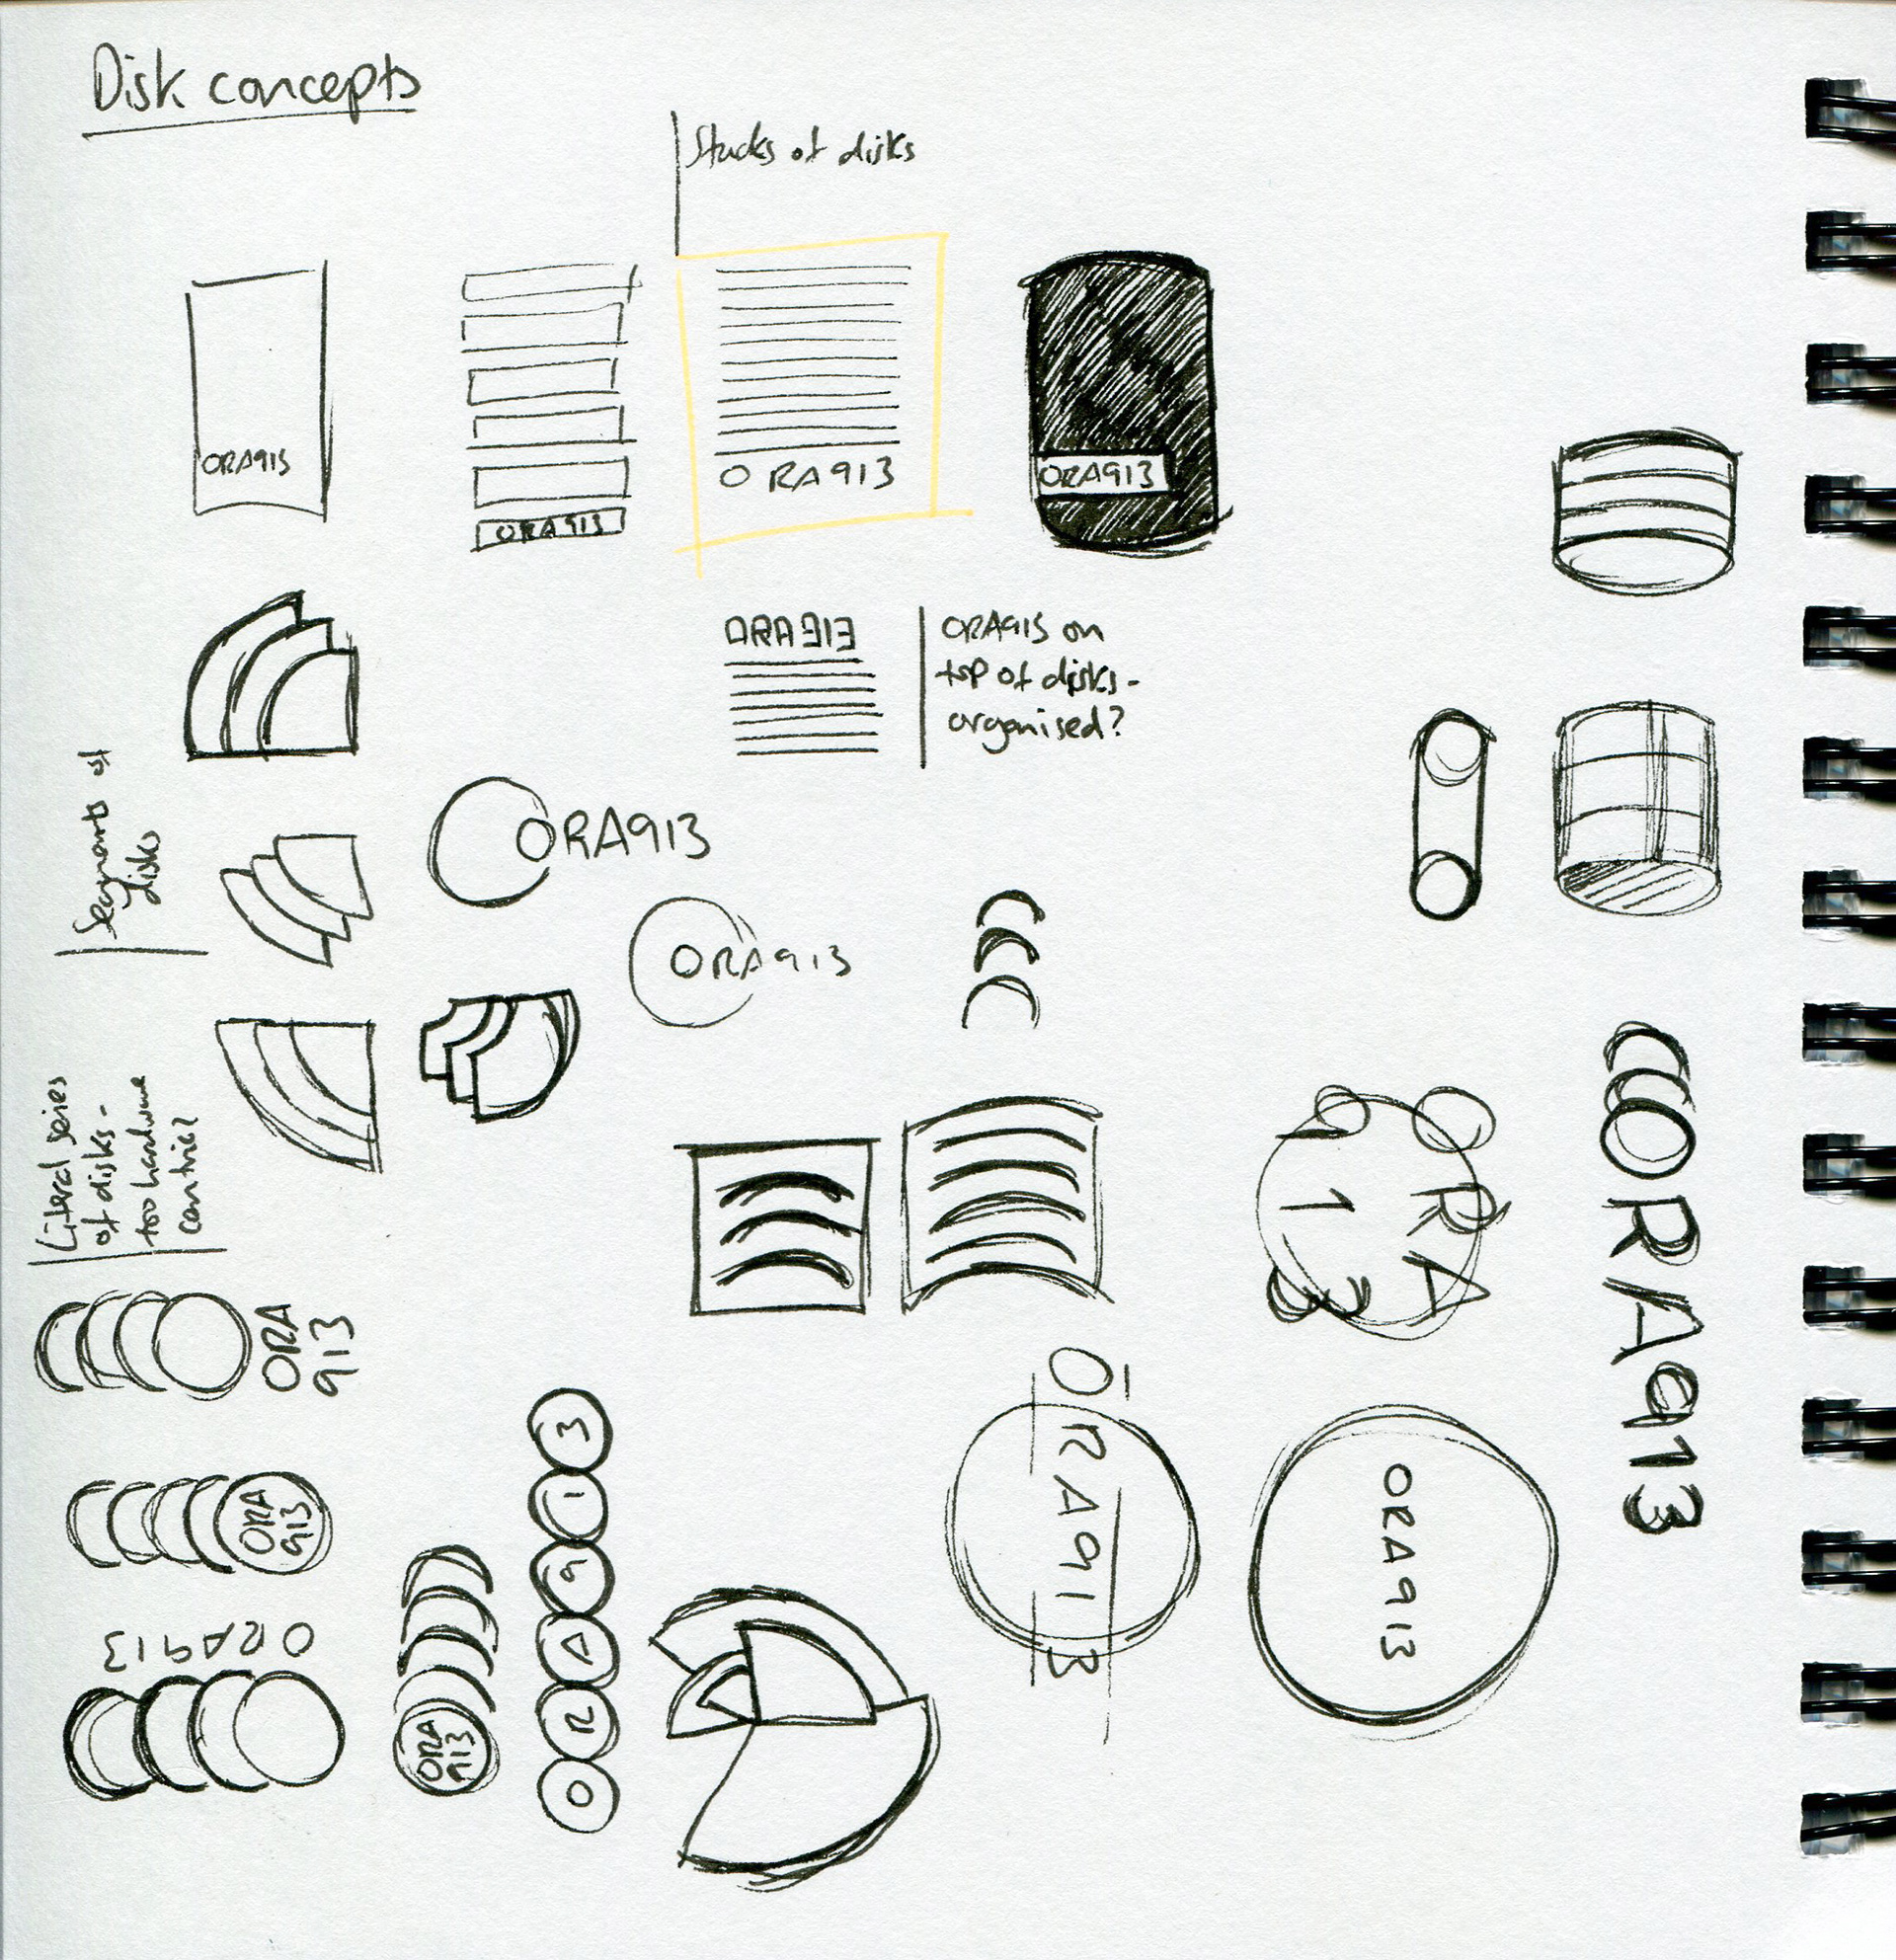 Disk concepts
Stacks of disks
ORA913
ORA913
ORA913
ORA913
ORA913
ORA913 on
top of disks -
organised?
Segments of
disks
ORA913
ORA913
Literal series
of disks -
too hardware
centric?
ORA
913
ORA
913
ORA913
ORA
913
3
1
9
A
R
O
ORA
913
ORA913
ORA913
ORA913